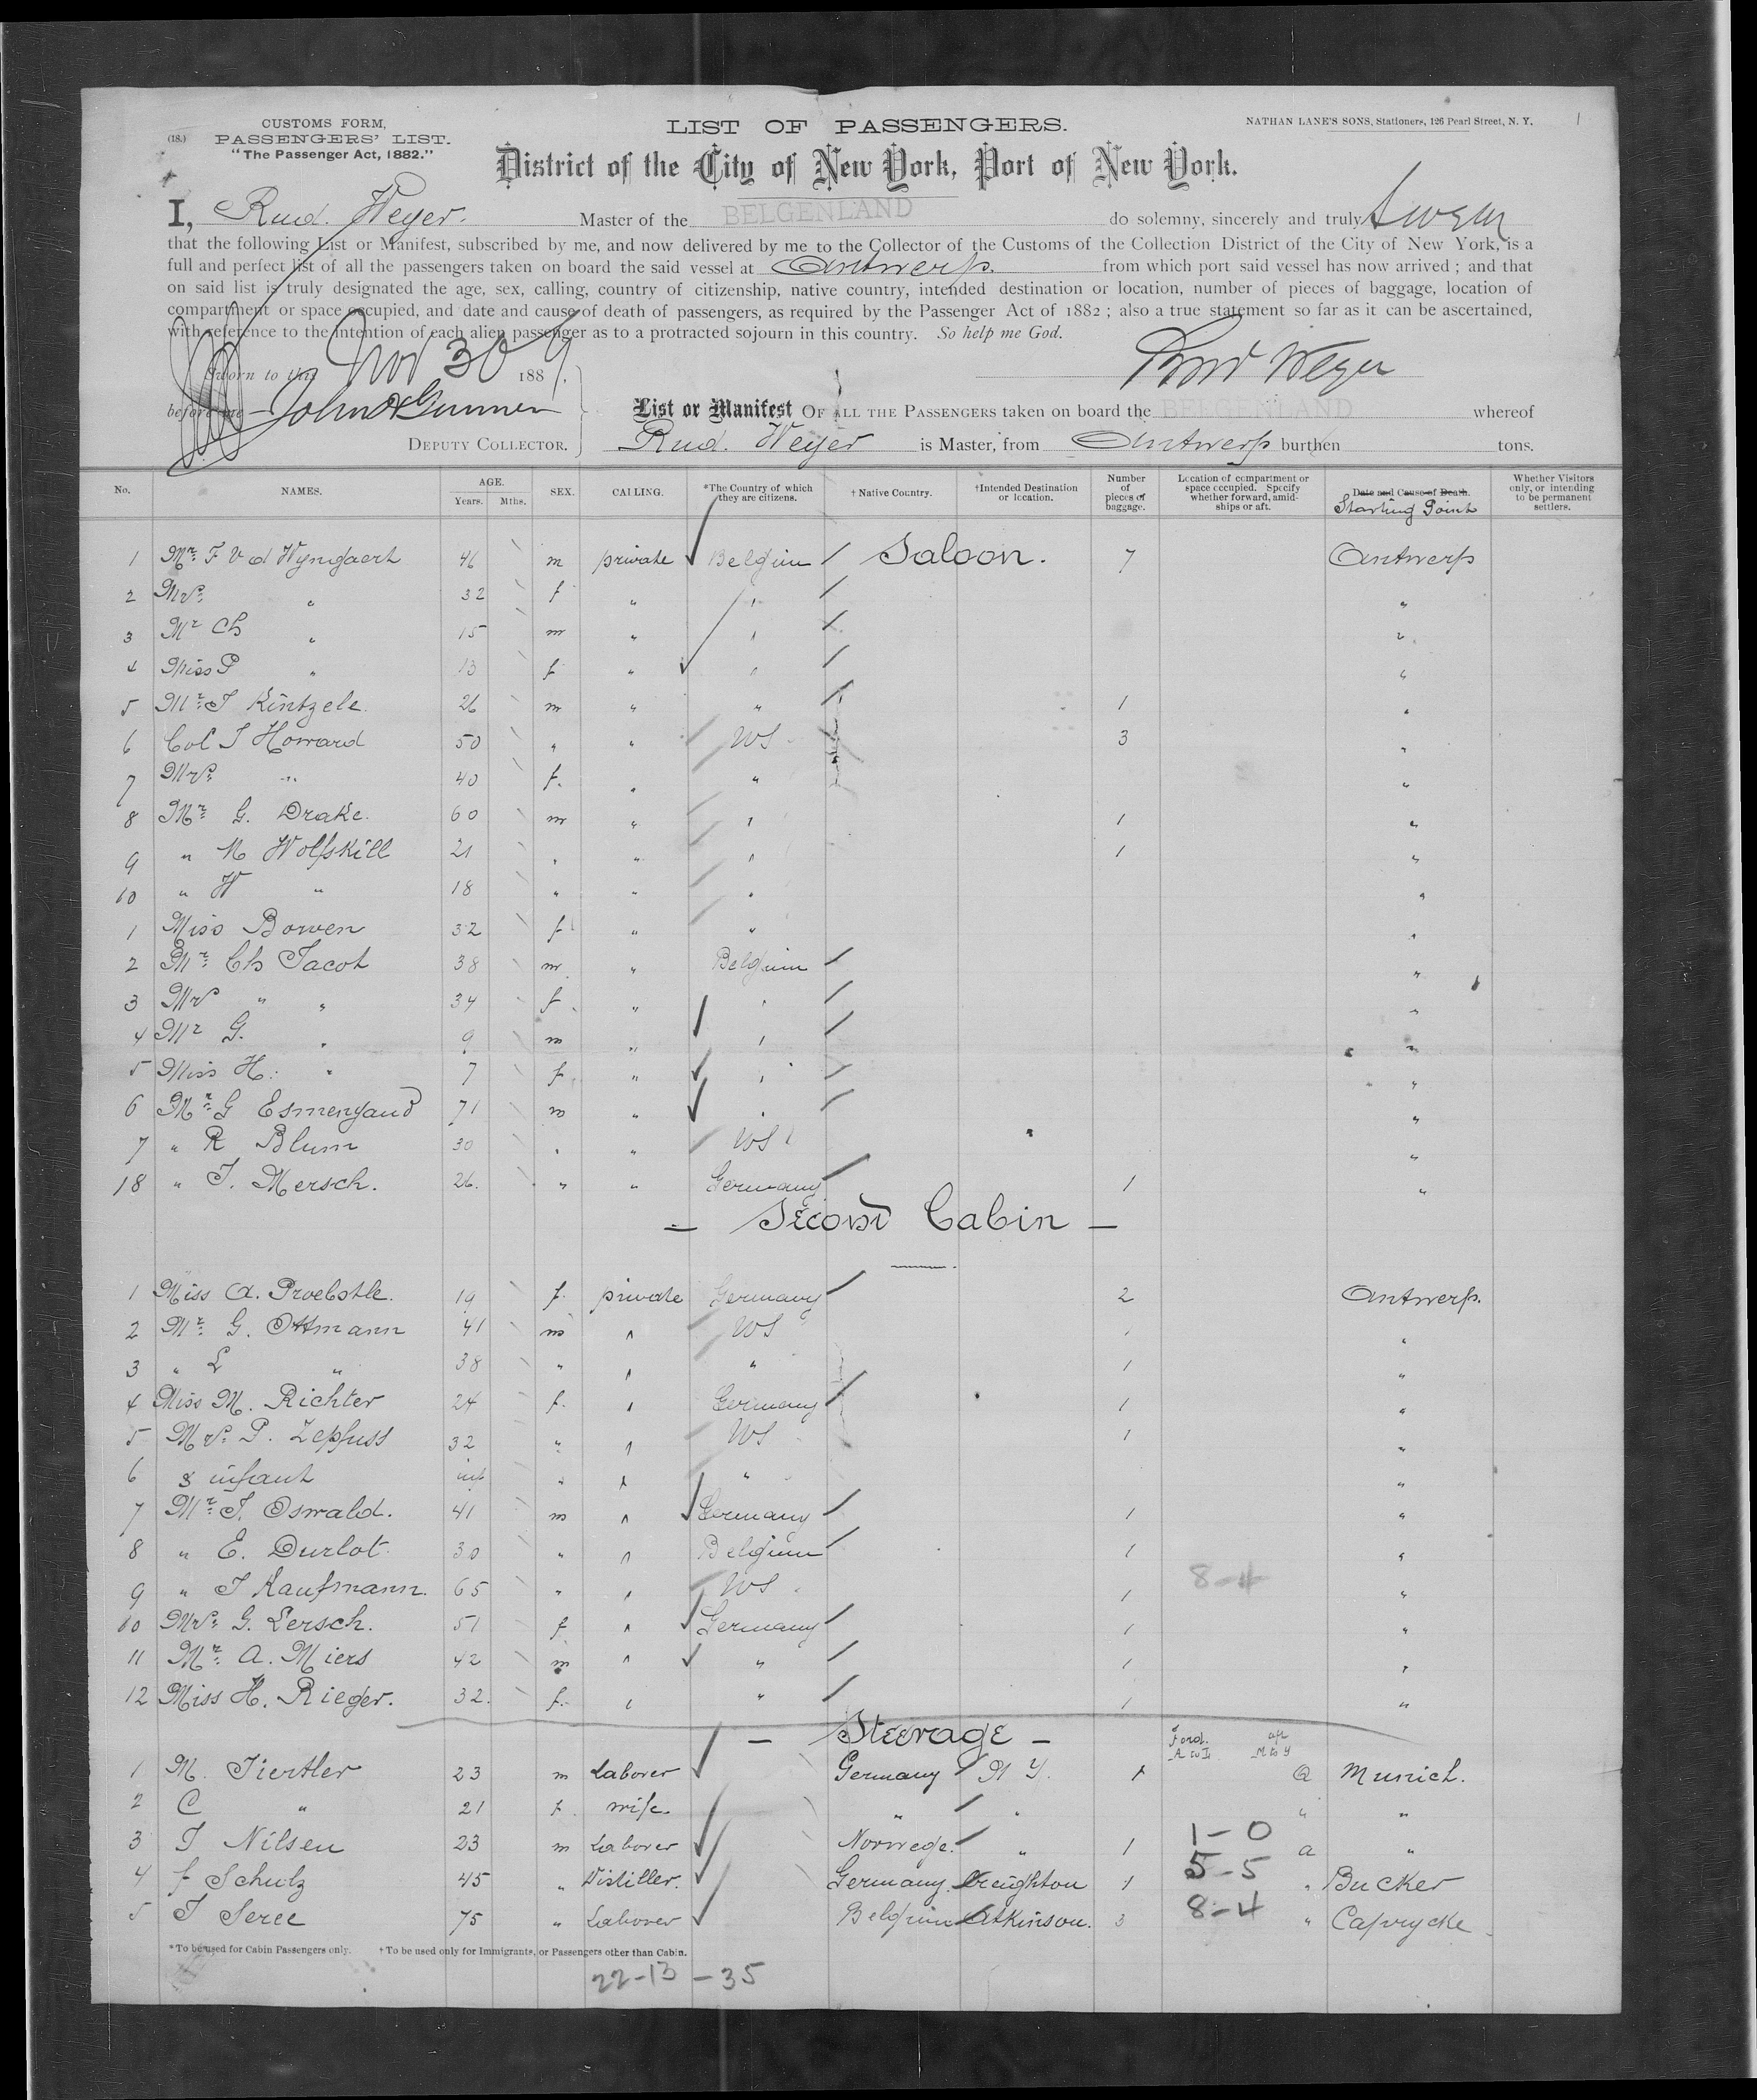 CUSTOMS FORM,
(18.) PASSENGERS' LIST.
"The Passenger Act, 1882."
LIST OF PASSENGERS.
NATHAN LANE'S SONS, Stationers, 126 Pearl Street, N. Y. 1
District of the City of New York, Port of New York.
I, Rud. Weyer. Master of the BELGENLAND do solemny, sincerely and truly swear
that the following List or Manifest, subscribed by me, and now delivered by me to the Collector of the Customs of the Collection District of the City of New York, is a
full and perfect list of all the passengers taken on board the said vessel at Antwerp. from which port said vessel has now arrived ; and that
on said list is truly designated the age, sex, calling, country of citizenship, native country, intended destination or location, number of pieces of baggage, location of
compartment or space occupied, and date and cause of death of passengers, as required by the Passenger Act of 1882 ; also a true statement so far as it can be ascertained,
with reference to the intention of each alien passenger as to a protracted sojourn in this country. So help me God.
Sworn to this Nov 30 1889.
Rud Weyer
before me
List or Manifest OF ALL THE PASSENGERS taken on board the BELGENLAND whereof
DEPUTY COLLECTOR. Rud. Weyer is Master, from Antwerp burthen tons.
No. NAMES. AGE. Years. Mths. SEX. CALLING. *The Country of which they are citizens. † Native Country. †Intended Destination or location. Number of pieces of baggage. Location of compartment or space occupied. Specify whether forward, amidships or aft. Date and Cause of Death. Starting Point Whether Visitors only, or intending to be permanent settlers.
1 Mr. F v d Wyngaert 46 m private Belgium Saloon. 7 Antwerp
2 Mrs. " 32 f " " "
3 Mr Ch " 15 m " " "
4 Miss P " 13 f " " "
5 Mr. J Kintzele. 26 m " " 1 "
6 Col J Howard 50 " " US 3 "
7 Mrs. " 40 f. " " "
8 Mr. G. Drake. 60 m " " 1 "
9 " N Wolfskill 21 " " " 1 "
10 " W " 18 " " " "
1 Miss Bowen 32 f " " "
2 Mr. Ch Jacot 38 m " Belgium "
3 Mrs " " 34 f " " "
4 Mr G. " 9 m " " "
5 Miss H. " 7 f " " "
6 Mr. G Esmenjaud 71 m " " "
7 " R Blum 30 " " US "
18 " J. Mersch. 26. " " Germany 1 "
— Second Cabin —
1 Miss A. Proebstle. 19 f. private Germany 2 Antwerp.
2 Mr. G. Ottmann 41 m " US 1 "
3 " L " 38 " " " 1 "
4 Miss M. Richter 24 f. " Germany 1 "
5 Mrs. P. Zepfuss 32 " " US 1 "
6 & infant inf " " " "
7 Mr. J. Oswald. 41 m " Germany 1 "
8 " E. Durlot 30 " " Belgium 1 "
9 " J Kaufmann. 65 " " US 1 8-4 "
10 Mrs. G. Lersch. 51 f " Germany 1 "
11 Mr. A. Miers 42 m " " 1 "
12 Miss H. Rieger. 32. f. " " 1 "
— Steerage —
1 M. Tiertler 23 m Laborer Germany N Y. 1 a Munich.
2 C " 21 f. wife. " " " "
3 J Nilsen 23 m Laborer Norwege. " 1 1-0 a "
4 f Schulz 45 " Distiller. Germany. Creighton 1 5-5 " Bucker
5 J Seree 75 " Laborer Belgium Atkinson. 3 8-4 " Caprycke
*To be used for Cabin Passengers only. †To be used only for Immigrants, or Passengers other than Cabin.
22-13-35